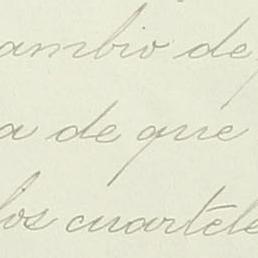 ambio de
a de que
los cuartele